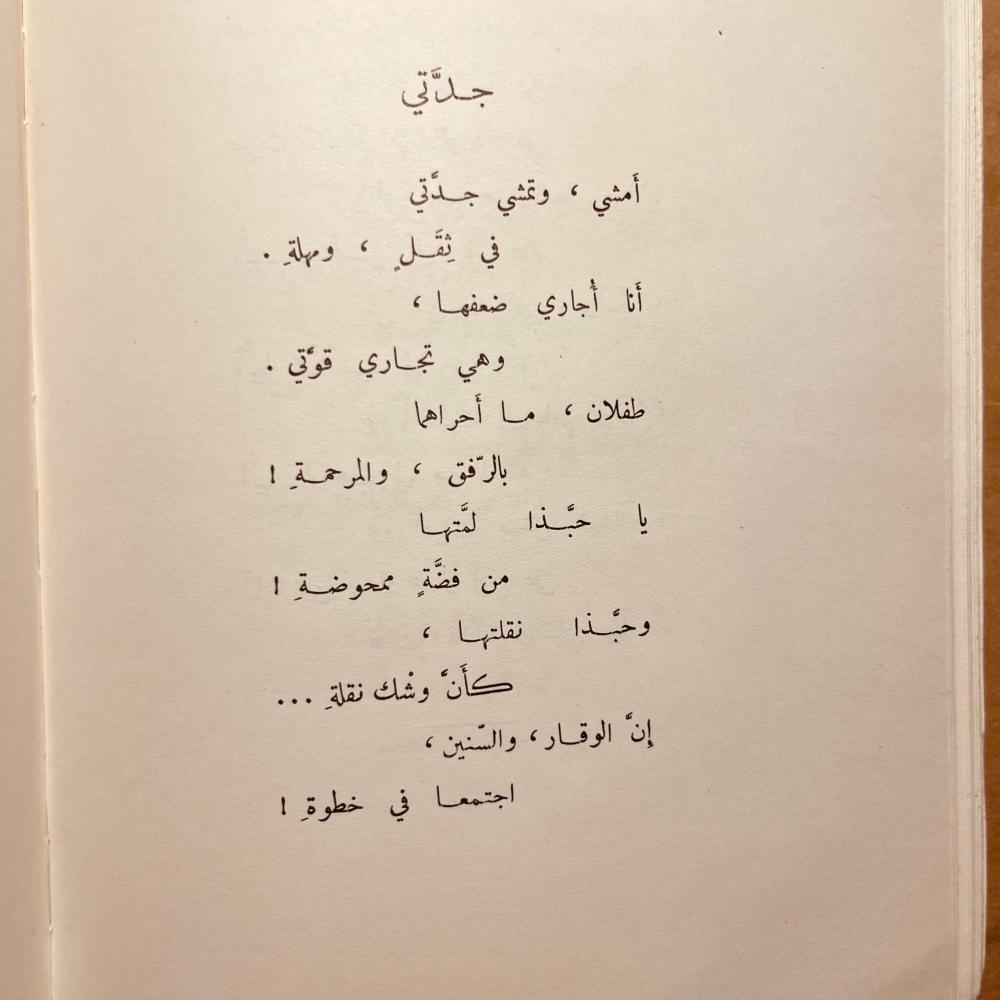 جدَّتي
أَمشي ، وتمشي جدَّتي
في ثِقَلٍ ، ومهلةِ .
أَنا أُجاري ضعفها ،
وهي تجاري قوَّتي .
طفلان ، ما أَحراهما
بالرّفق ، والمرحمةِ !
يا حبَّذا لمَّتها
من فضَّةٍ ممحوضةِ !
وحبَّذا نقلتها ،
كأَنَّ وشْك نقلةِ ...
إِنَّ الوقار ، والسّنين ،
اجتمعا في خطوةِ !